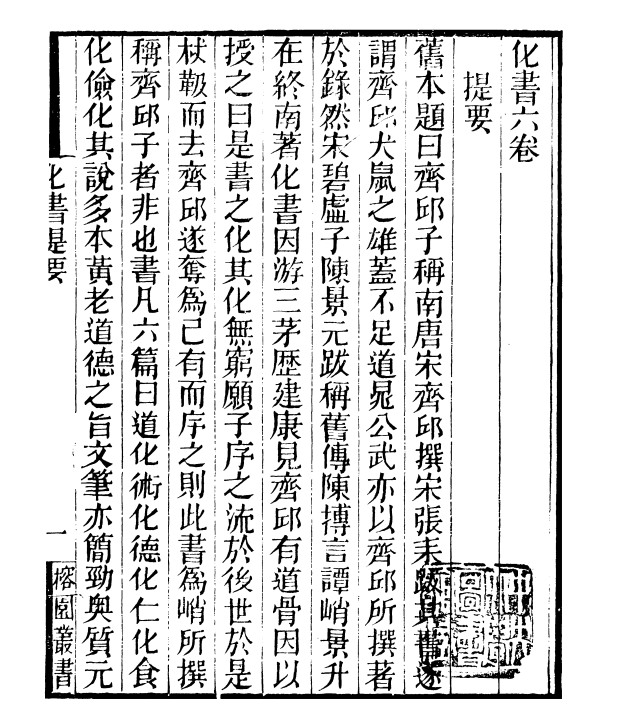 化書六卷
提要
舊本題曰齊邱子稱南唐宋齊邱撰宋張耒跋其書遂
謂齊邱犬鼠之雄蓋不足道晁公武亦以齊邱所撰著
於錄然宋碧虛子陳景元跋稱舊傳陳摶言譚峭景升
在終南著化書因游三茅歴建康見齊邱有道骨因以
授之曰是書之化其化無窮願子序之流於後世於是
杖靸而去齊邱遂奪爲己有而序之則此書爲峭所撰
稱齊邱子者非也書凡六篇曰道化術化德化仁化食
化儉化其說多本黃老道德之旨文筆亦簡勁奥質元
化書提要
一
榕園叢書